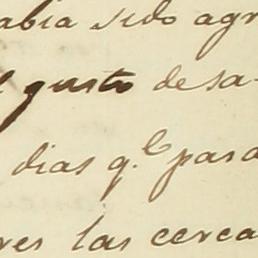 abia sido agr
l gusto de sa-
dias q.e para
res las cerca